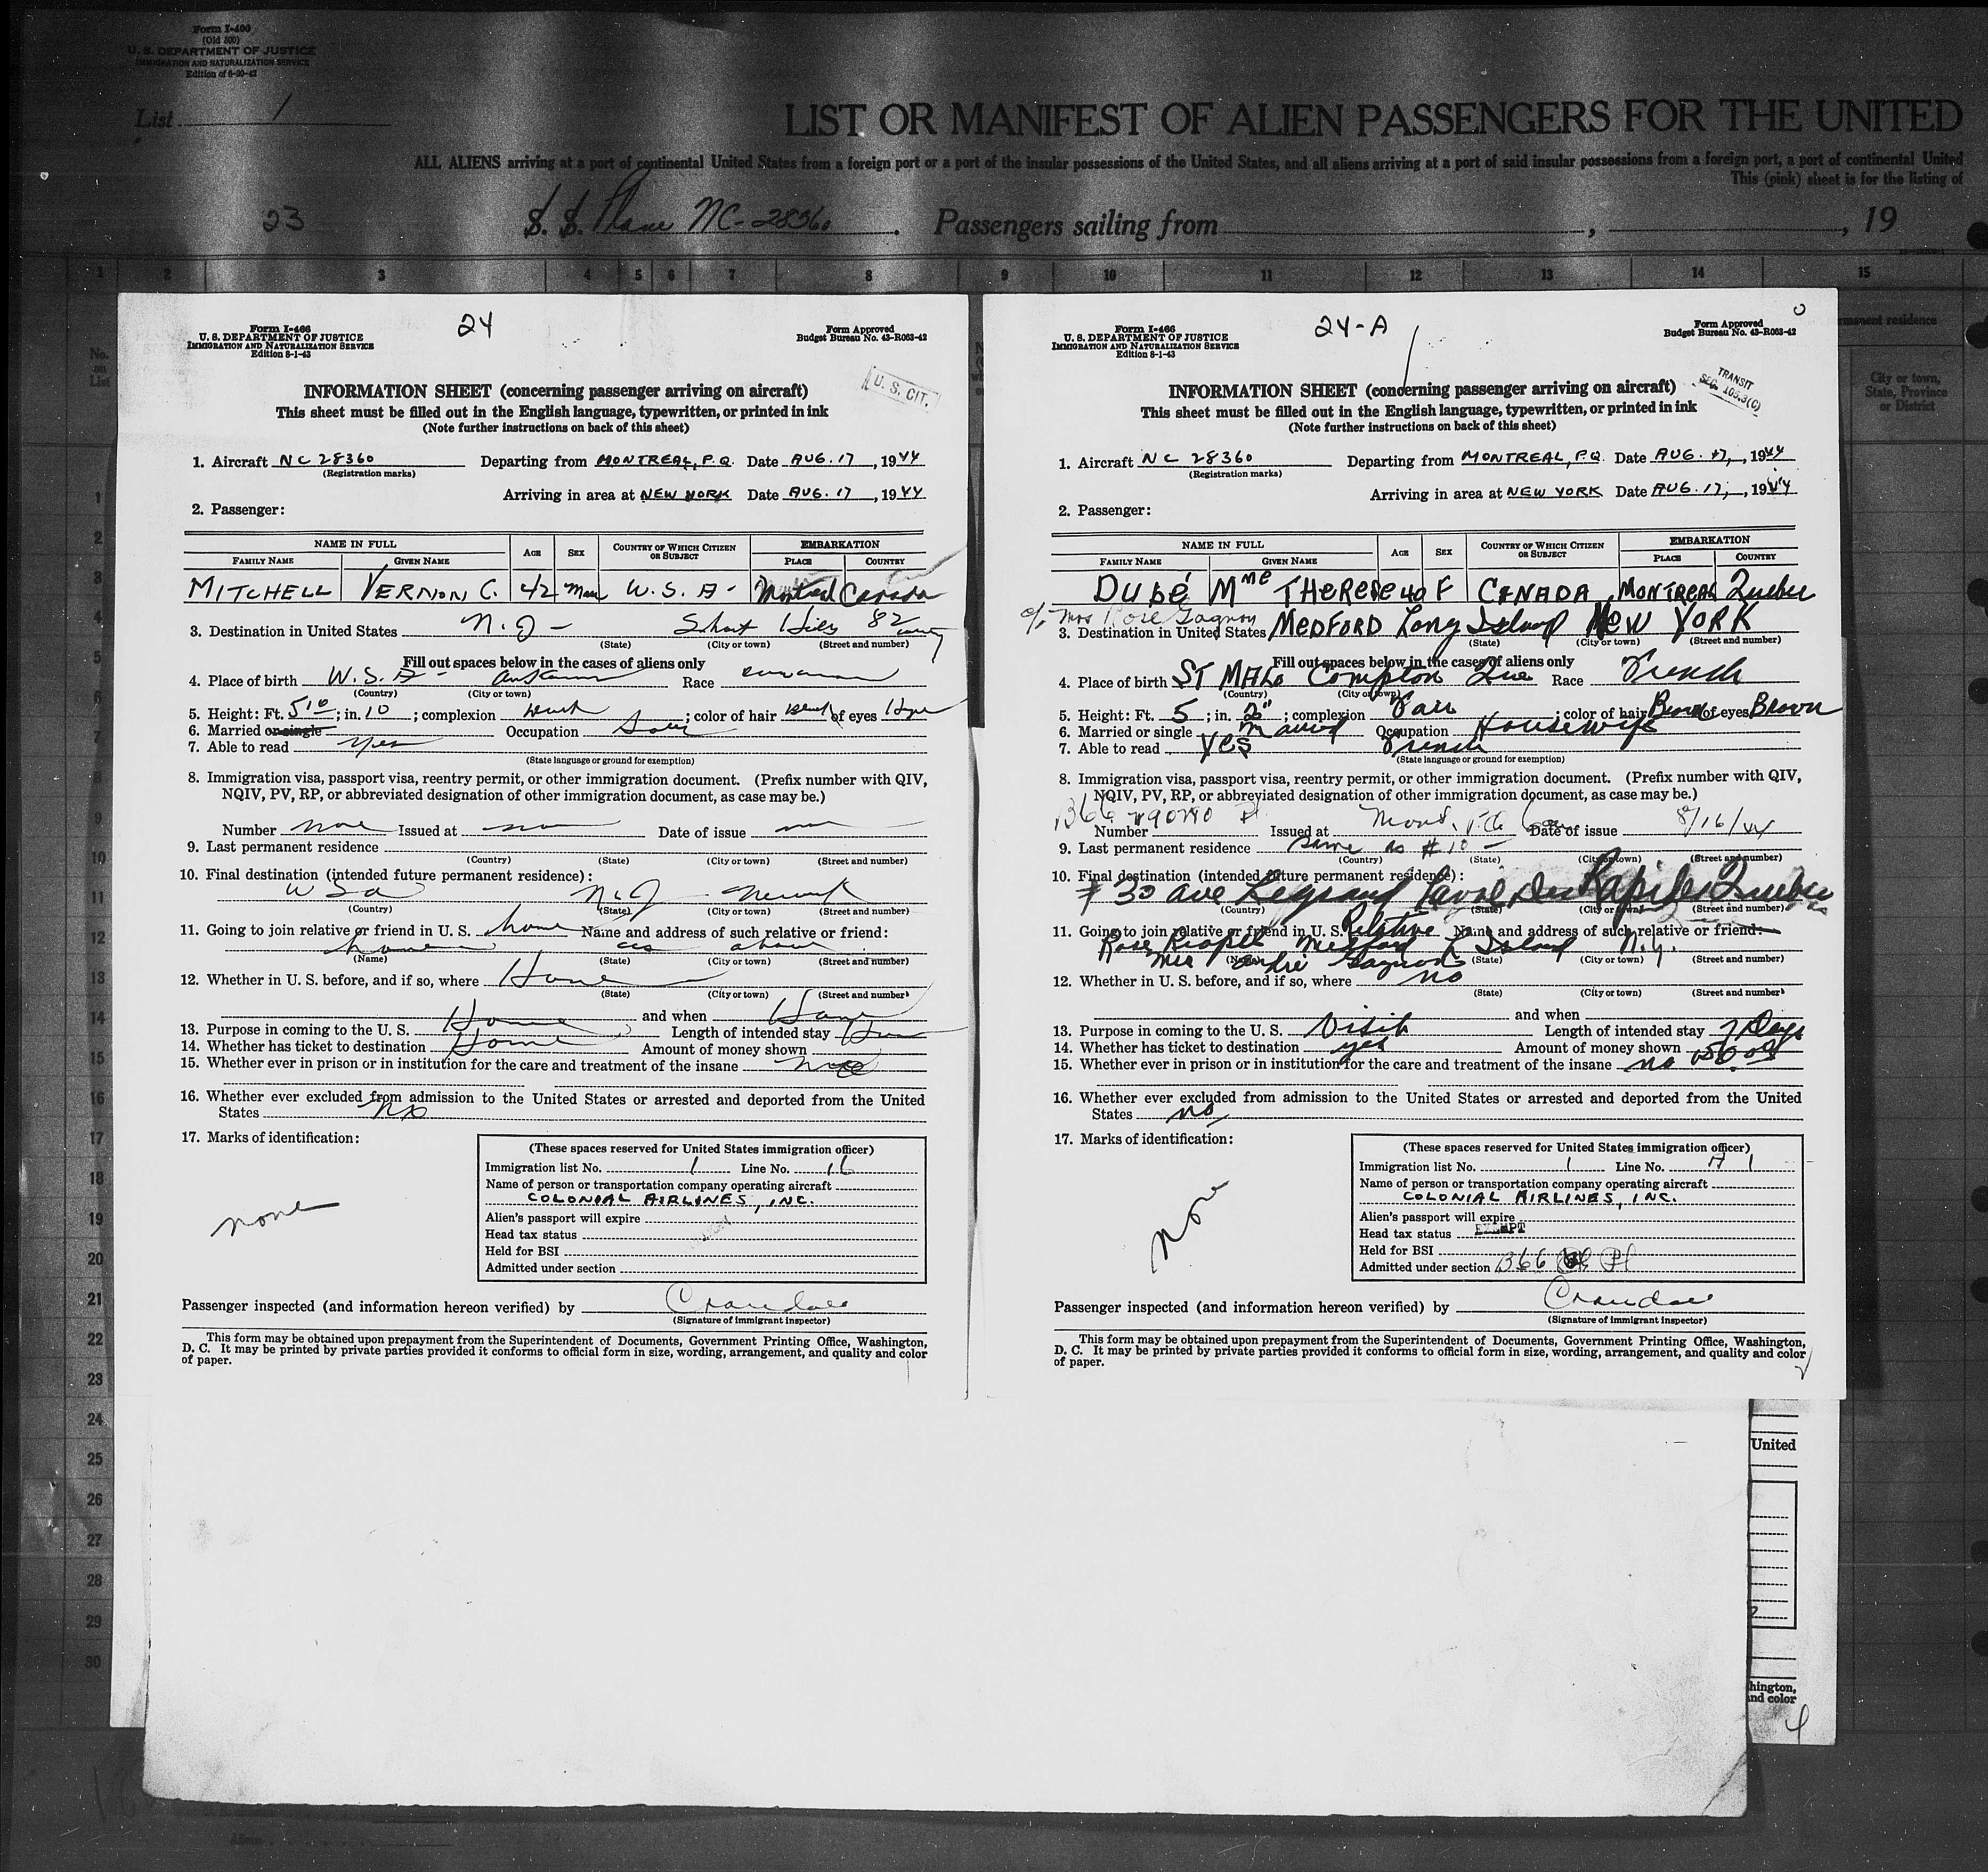 Form I-400
(Old 500)
U. S. DEPARTMENT OF JUSTICE
IMMIGRATION AND NATURALIZATION SERVICE
Edition of 6-20-42
List 1
LIST OR MANIFEST OF ALIEN PASSENGERS FOR THE UNITED
ALL ALIENS arriving at a port of continental United States from a foreign port or a port of the insular possessions of the United States, and all aliens arriving at a port of said insular possessions from a foreign port, a port of continental United
This (pink) sheet is for the listing of
23 S. S. Plane NC-28360. Passengers sailing from , , 19
1 2 3 4 5 6 7 8 9 10 11 12 13 14 15
24
Form I-466
U. S. DEPARTMENT OF JUSTICE
IMMIGRATION AND NATURALIZATION SERVICE
Edition 8-1-43
Form Approved
Budget Bureau No. 43-R063-42
U. S. CIT.
INFORMATION SHEET (concerning passenger arriving on aircraft)
This sheet must be filled out in the English language, typewritten, or printed in ink
(Note further instructions on back of this sheet)
1. Aircraft NC 28360 Departing from MONTREAL, P.Q. Date AUG. 17, 1944
(Registration marks)
Arriving in area at NEW YORK Date AUG. 17, 1944
2. Passenger:
NAME IN FULL AGE SEX COUNTRY OF WHICH CITIZEN OR SUBJECT EMBARKATION
FAMILY NAME GIVEN NAME PLACE COUNTRY
MITCHELL VERNON C. 42 Man U.S.A- Montreal Canada
3. Destination in United States N.J- Short Hills 82
(State) (City or town) (Street and number)
Fill out spaces below in the cases of aliens only
4. Place of birth U.S.A- Race
(Country) (City or town)
5. Height: Ft. 5 10; in. 10; complexion ; color of hair of eyes
6. Married or single Occupation
7. Able to read yes
(State language or ground for exemption)
8. Immigration visa, passport visa, reentry permit, or other immigration document. (Prefix number with QIV,
NQIV, PV, RP, or abbreviated designation of other immigration document, as case may be.)
Number Issued at Date of issue
9. Last permanent residence
(Country) (State) (City or town) (Street and number)
10. Final destination (intended future permanent residence):
USA N.J Newark
(Country) (State) (City or town) (Street and number)
11. Going to join relative or friend in U. S. home Name and address of such relative or friend:
home as above
(Name) (State) (City or town) (Street and number)
12. Whether in U. S. before, and if so, where Home
(State) (City or town) (Street and number)
and when Home
13. Purpose in coming to the U. S. Home Length of intended stay
14. Whether has ticket to destination Home Amount of money shown
15. Whether ever in prison or in institution for the care and treatment of the insane
16. Whether ever excluded from admission to the United States or arrested and deported from the United
States No
17. Marks of identification:
none
(These spaces reserved for United States immigration officer)
Immigration list No. 1 Line No. 16
Name of person or transportation company operating aircraft
COLONIAL AIRLINES, INC.
Alien's passport will expire
Head tax status
Held for BSI
Admitted under section
Passenger inspected (and information hereon verified) by Crandall
(Signature of immigrant inspector)
This form may be obtained upon prepayment from the Superintendent of Documents, Government Printing Office, Washington,
D. C. It may be printed by private parties provided it conforms to official form in size, wording, arrangement, and quality and color
of paper.
24-A
Form I-466
U. S. DEPARTMENT OF JUSTICE
IMMIGRATION AND NATURALIZATION SERVICE
Edition 8-1-43
Form Approved
Budget Bureau No. 43-R063-42
TRANSIT
SEC. 105.3(C)
INFORMATION SHEET (concerning passenger arriving on aircraft)
This sheet must be filled out in the English language, typewritten, or printed in ink
(Note further instructions on back of this sheet)
1. Aircraft NC 28360 Departing from MONTREAL, P.Q. Date AUG. 17, 1944
(Registration marks)
Arriving in area at NEW YORK Date AUG. 17, 1944
2. Passenger:
NAME IN FULL AGE SEX COUNTRY OF WHICH CITIZEN OR SUBJECT EMBARKATION
FAMILY NAME GIVEN NAME PLACE COUNTRY
DUBÉ Mme THERESE 40 F CANADA MONTREAL Quebec
c/o Mrs Rose Gagnon
3. Destination in United States MEDFORD Long Island NEW YORK
(State) (City or town) (Street and number)
Fill out spaces below in the cases of aliens only
4. Place of birth ST MALO Compton Que Race French
(Country) (City or town)
5. Height: Ft. 5; in. 2"; complexion Fair; color of hair Brown of eyes Brown
6. Married or single Married Occupation Housewife
7. Able to read Yes French
(State language or ground for exemption)
8. Immigration visa, passport visa, reentry permit, or other immigration document. (Prefix number with QIV,
NQIV, PV, RP, or abbreviated designation of other immigration document, as case may be.)
Number Issued at Mont. P.Q. Can Date of issue 8/16/44
9. Last permanent residence Same as #10-
(Country) (State) (City or town) (Street and number)
10. Final destination (intended future permanent residence):
# 30 ave Legrand Laval Des Rapides Quebec
(Country) (State) (City or town) (Street and number)
11. Going to join relative or friend in U. S. Relative Name and address of such relative or friend:
Rose Medford L Island N.Y.
Mrs André Gagnon
(Name) (State) (City or town) (Street and number)
12. Whether in U. S. before, and if so, where no
(State) (City or town) (Street and number)
and when
13. Purpose in coming to the U. S. Visit Length of intended stay 7 Days
14. Whether has ticket to destination yes Amount of money shown 50.00
15. Whether ever in prison or in institution for the care and treatment of the insane no
16. Whether ever excluded from admission to the United States or arrested and deported from the United
States no
17. Marks of identification:
none
(These spaces reserved for United States immigration officer)
Immigration list No. 1 Line No. A 1
Name of person or transportation company operating aircraft
COLONIAL AIRLINES, INC.
Alien's passport will expire
Head tax status EXEMPT
Held for BSI
Admitted under section B66
Passenger inspected (and information hereon verified) by Crandall
(Signature of immigrant inspector)
This form may be obtained upon prepayment from the Superintendent of Documents, Government Printing Office, Washington,
D. C. It may be printed by private parties provided it conforms to official form in size, wording, arrangement, and quality and color
of paper.
No. on List
1
2
3
4
5
6
7
8
9
10
11
12
13
14
15
16
17
18
19
20
21
22
23
24
25
26
27
28
29
30
permanent residence
City or town,
State, Province
or District
United
hington,
nd color